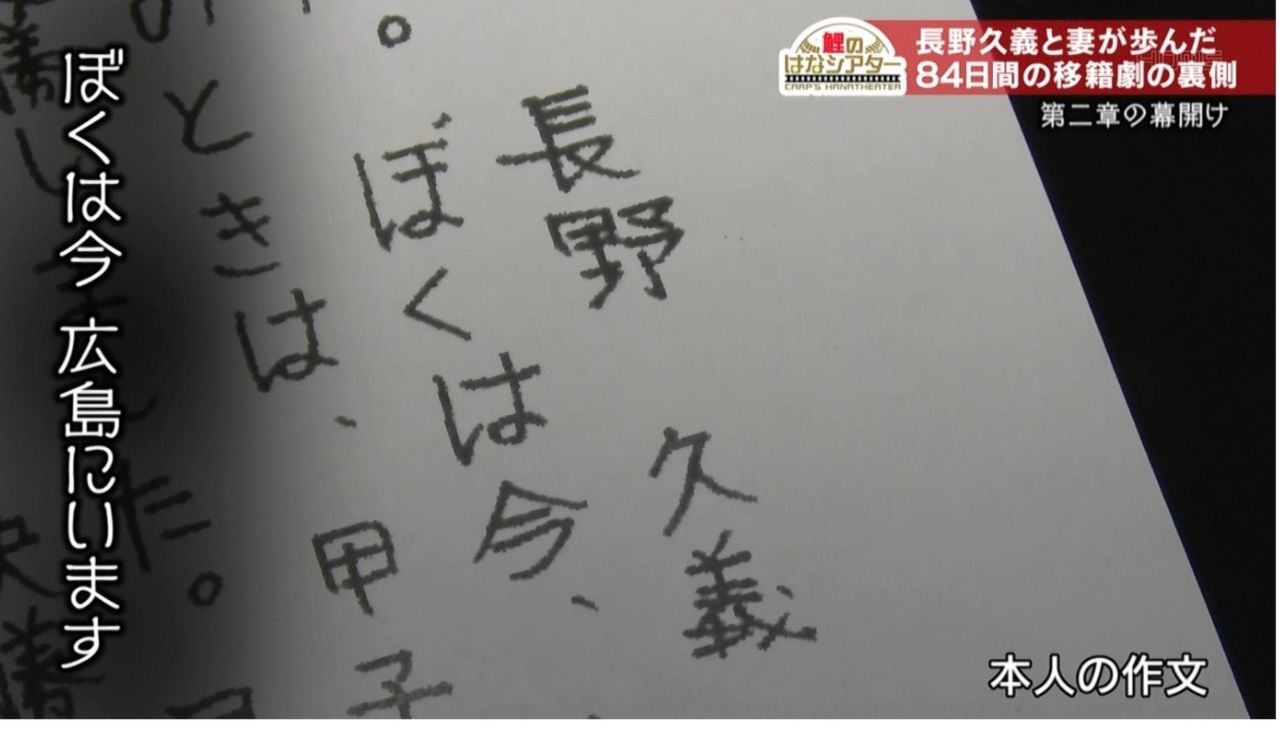 鯉の
はなシアター
CARP'S HANATHEATER
長野久義と妻が歩んだ
84日間の移籍劇の裏側
第二章の幕開け
長野 久義
ぼくは今、
ときは、甲子
た。
ぼくは今 広島にいます
本人の作文